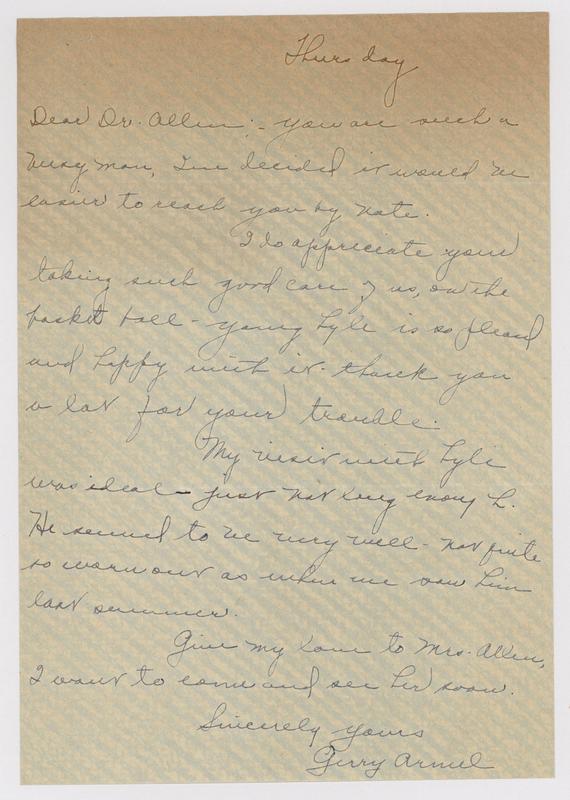 Thursday
Dear Dr. Allen:- You are such a
busy man, I've decided it would be
easier to reach you by note.
I do appreciate your
taking such good care of us, on the
basket ball - young Lyle is so pleased
and happy with it. Thank you
a lot for your trouble.
My visit with Lyle
was ideal - just not long enough.
He seemed to be very well - not quite
so worn out as when we saw him
last summer.
Give my love to Mrs. Allen,
I want to come and see her soon.
Sincerely yours
Gerry Armel